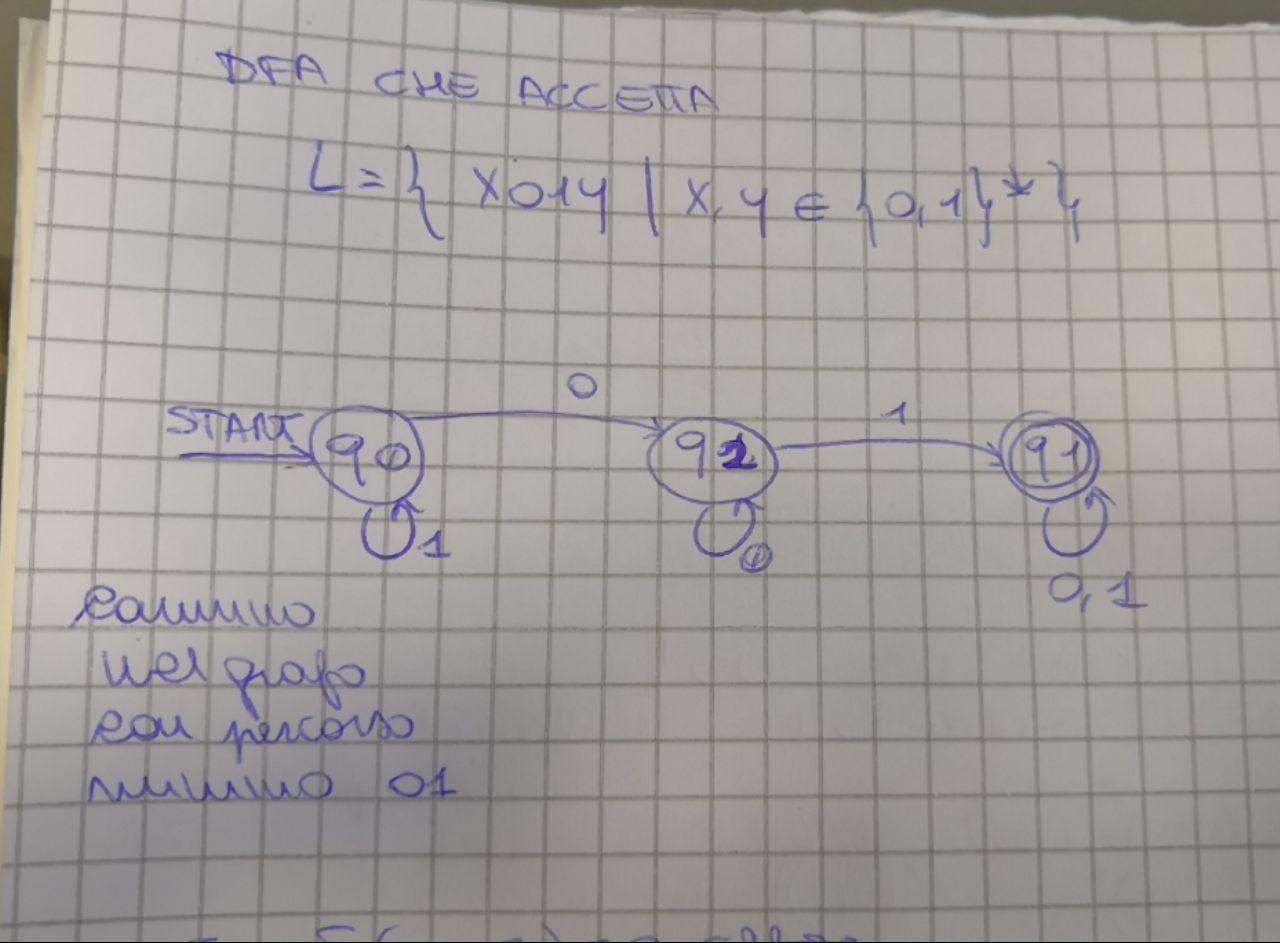 DFA CHE ACCETTA
L = { x01y | x, y ∈ {0,1}* }
0
1
START
q0
q2
q1
1
0
0,1
cammino
nel grafo
con percorso
minimo 01